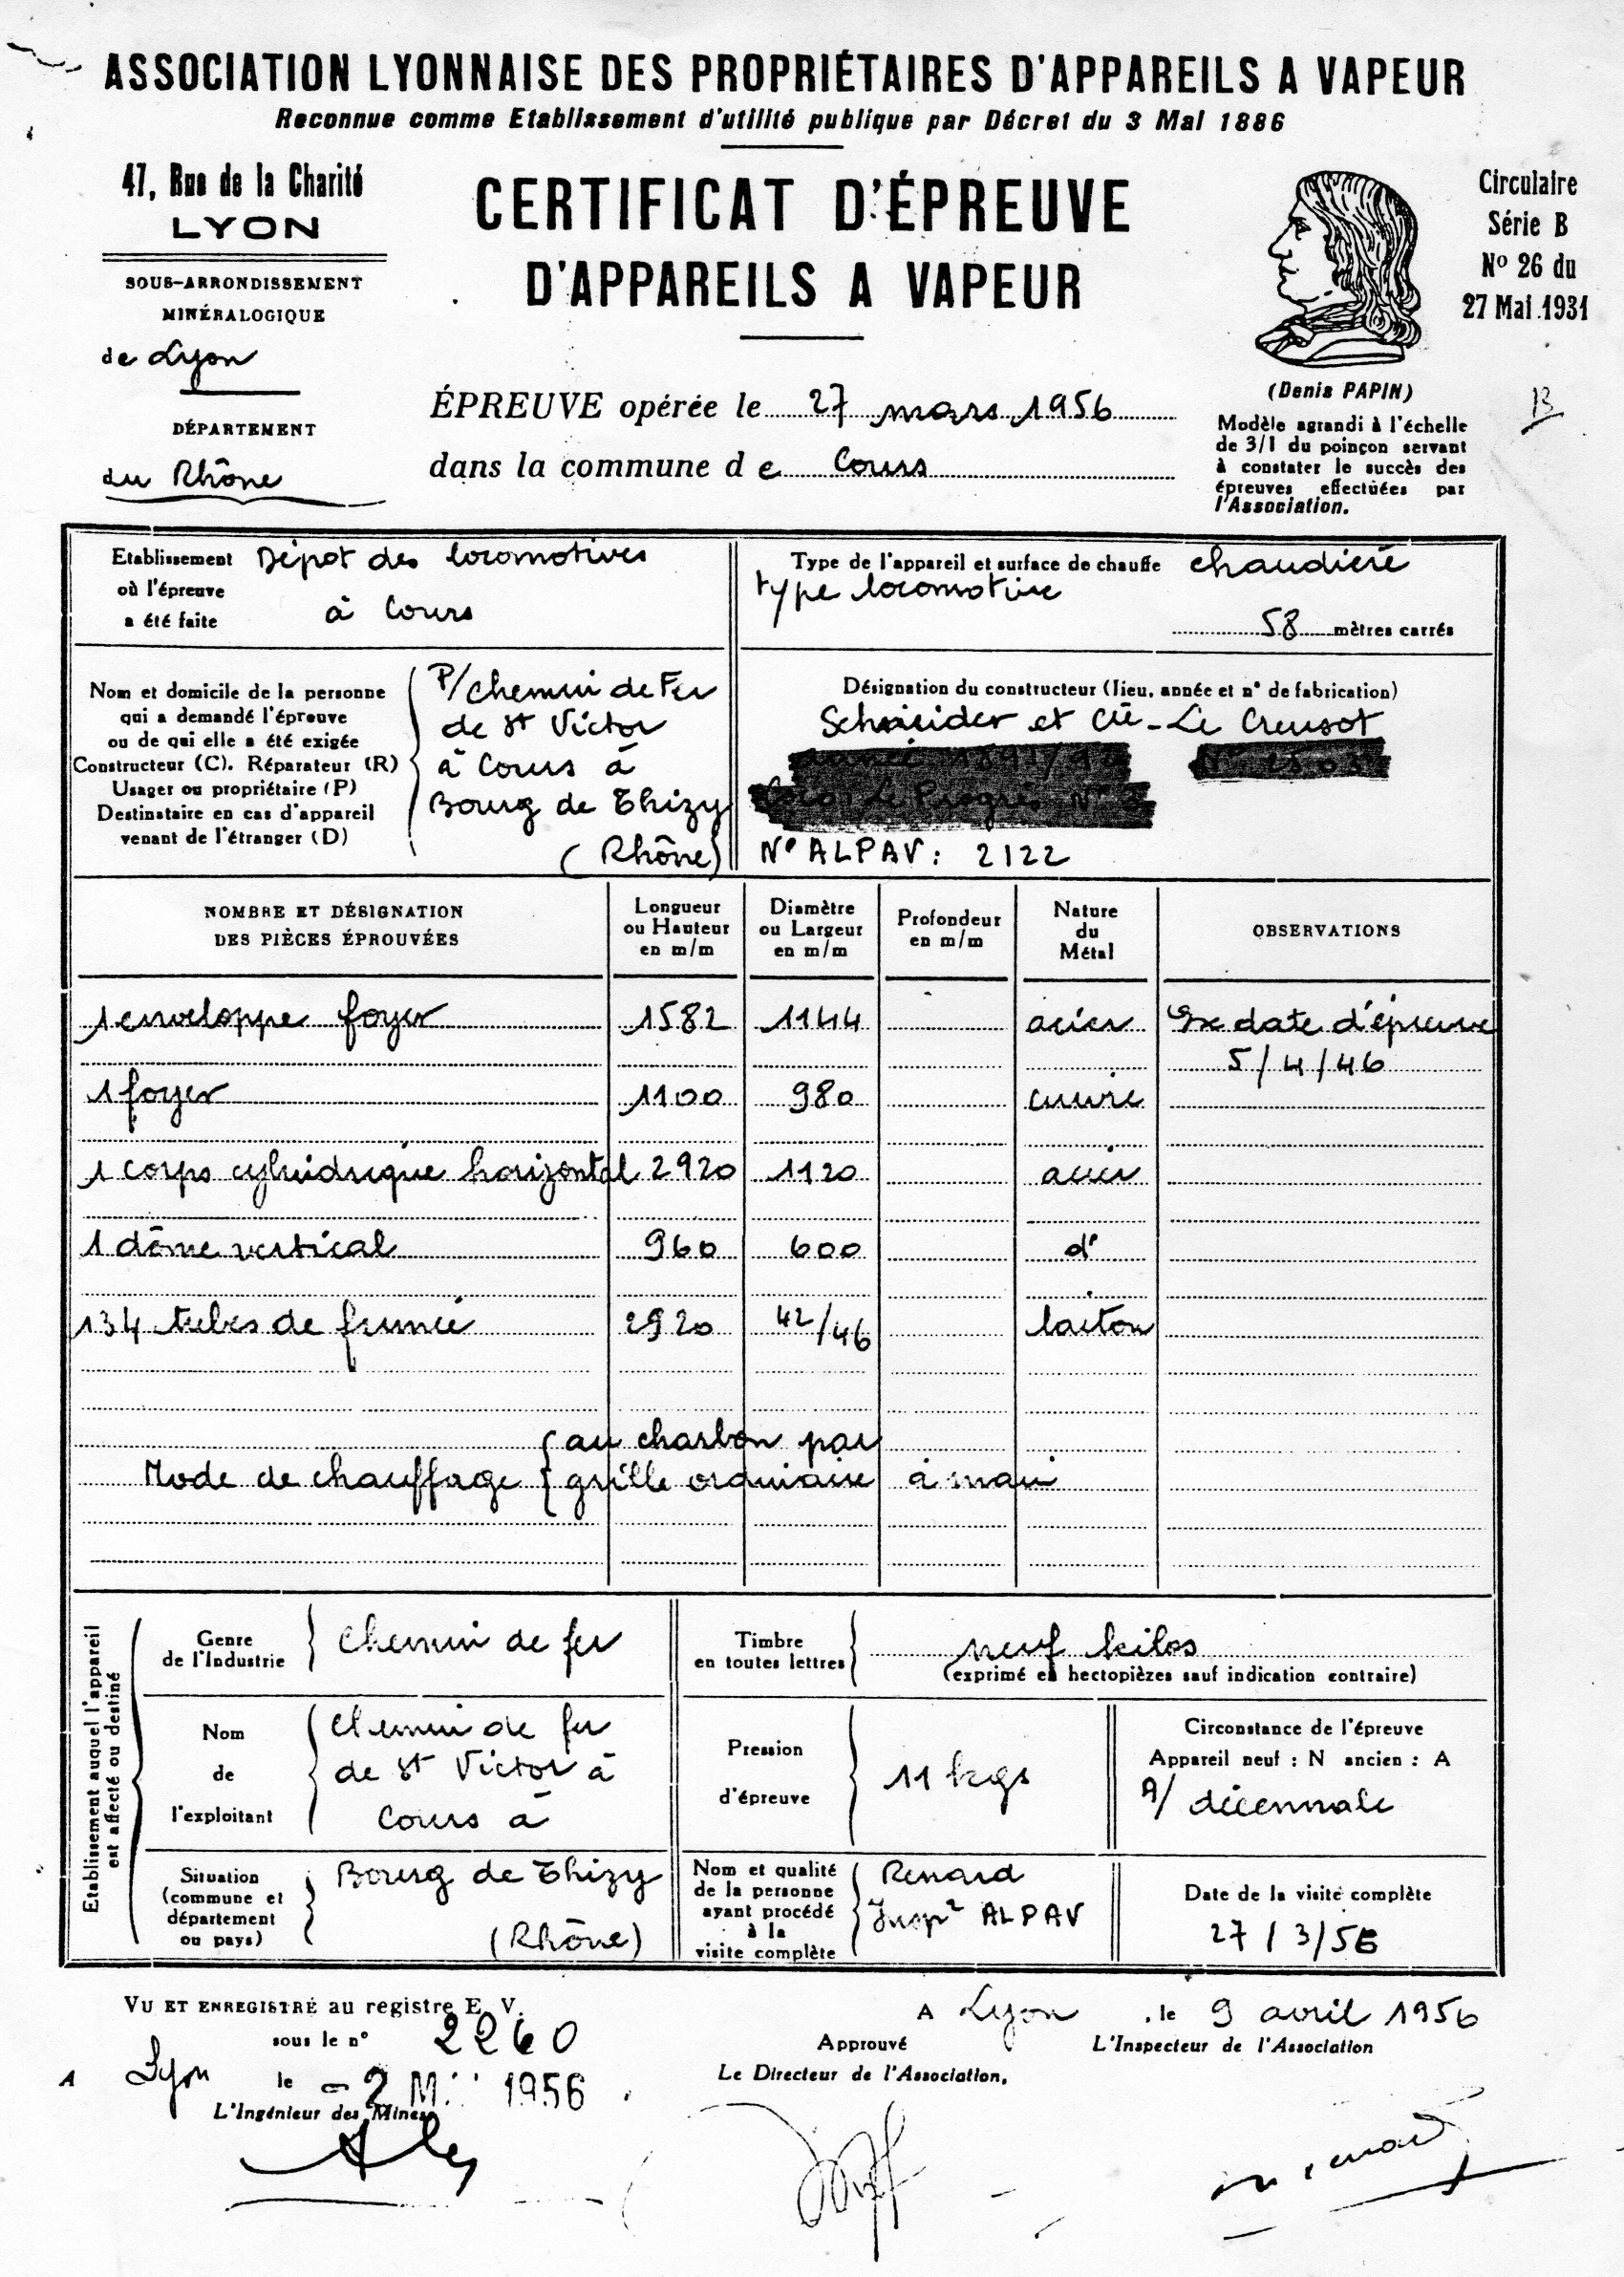 ASSOCIATION LYONNAISE DES PROPRIÉTAIRES D'APPAREILS A VAPEUR
Reconnue comme Etablissement d'utilité publique par Décret du 3 Mai 1886
47, Rue de la Charité
LYON
SOUS-ARRONDISSEMENT
MINÉRALOGIQUE
de Lyon
DÉPARTEMENT
du Rhône
CERTIFICAT D'ÉPREUVE
D'APPAREILS A VAPEUR
ÉPREUVE opérée le 27 mars 1956
dans la commune de Cours
(Denis PAPIN)
Modèle agrandi à l'échelle
de 3/1 du poinçon servant
à constater le succès des
épreuves effectuées par
l'Association.
Circulaire
Série B
Nº 26 du
27 Mai 1931
B
Etablissement
où l'épreuve
a été faite
Dépot des locomotives
à Cours
Type de l'appareil et surface de chauffe chaudière
type locomotive
58 mètres carrés
Nom et domicile de la personne
qui a demandé l'épreuve
ou de qui elle a été exigée
Constructeur (C). Réparateur (R)
Usager ou propriétaire (P)
Destinataire en cas d'appareil
venant de l'étranger (D)
P/Chemin de Fer
de St Victor
à Cours à
Bourg de Thizy
(Rhône)
Désignation du constructeur (lieu, année et nº de fabrication)
Schneider et Cie - Le Creusot
Nº ALPAV : 2122
NOMBRE ET DÉSIGNATION
DES PIÈCES ÉPROUVÉES
Longueur
ou Hauteur
en m/m
Diamètre
ou Largeur
en m/m
Profondeur
en m/m
Nature
du
Métal
OBSERVATIONS
1 enveloppe foyer 1582 1144 acier Ex date d'épreuve
5/4/46
1 foyer 1100 980 cuivre
1 corps cylindrique horizontal 2920 1120 acier
1 dôme vertical 960 600 dº
134 tubes de fumée 2920 42/46 laiton
au charbon par
Mode de chauffage grille ordinaire à main
Etablissement auquel l'appareil
est affecté ou destiné
Genre
de l'Industrie
Chemin de fer
Timbre
en toutes lettres
neuf kilos
(exprimé en hectopièzes sauf indication contraire)
Nom
de
l'exploitant
Chemin de fer
de St Victor à
Cours à
Pression
d'épreuve
11 kgs
Circonstance de l'épreuve
Appareil neuf : N ancien : A
A/ décennale
Situation
(commune et
département
ou pays)
Bourg de Thizy
(Rhône)
Nom et qualité
de la personne
ayant procédé
à la
visite complète
Renard
ALPAV
Date de la visite complète
27/3/56
VU ET ENREGISTRÉ au registre E. V.
sous le nº 2260
A Lyon le - 2 1956
L'Ingénieur des Mines
A Lyon, le 9 avril 1956
Approuvé
Le Directeur de l'Association,
L'Inspecteur de l'Association